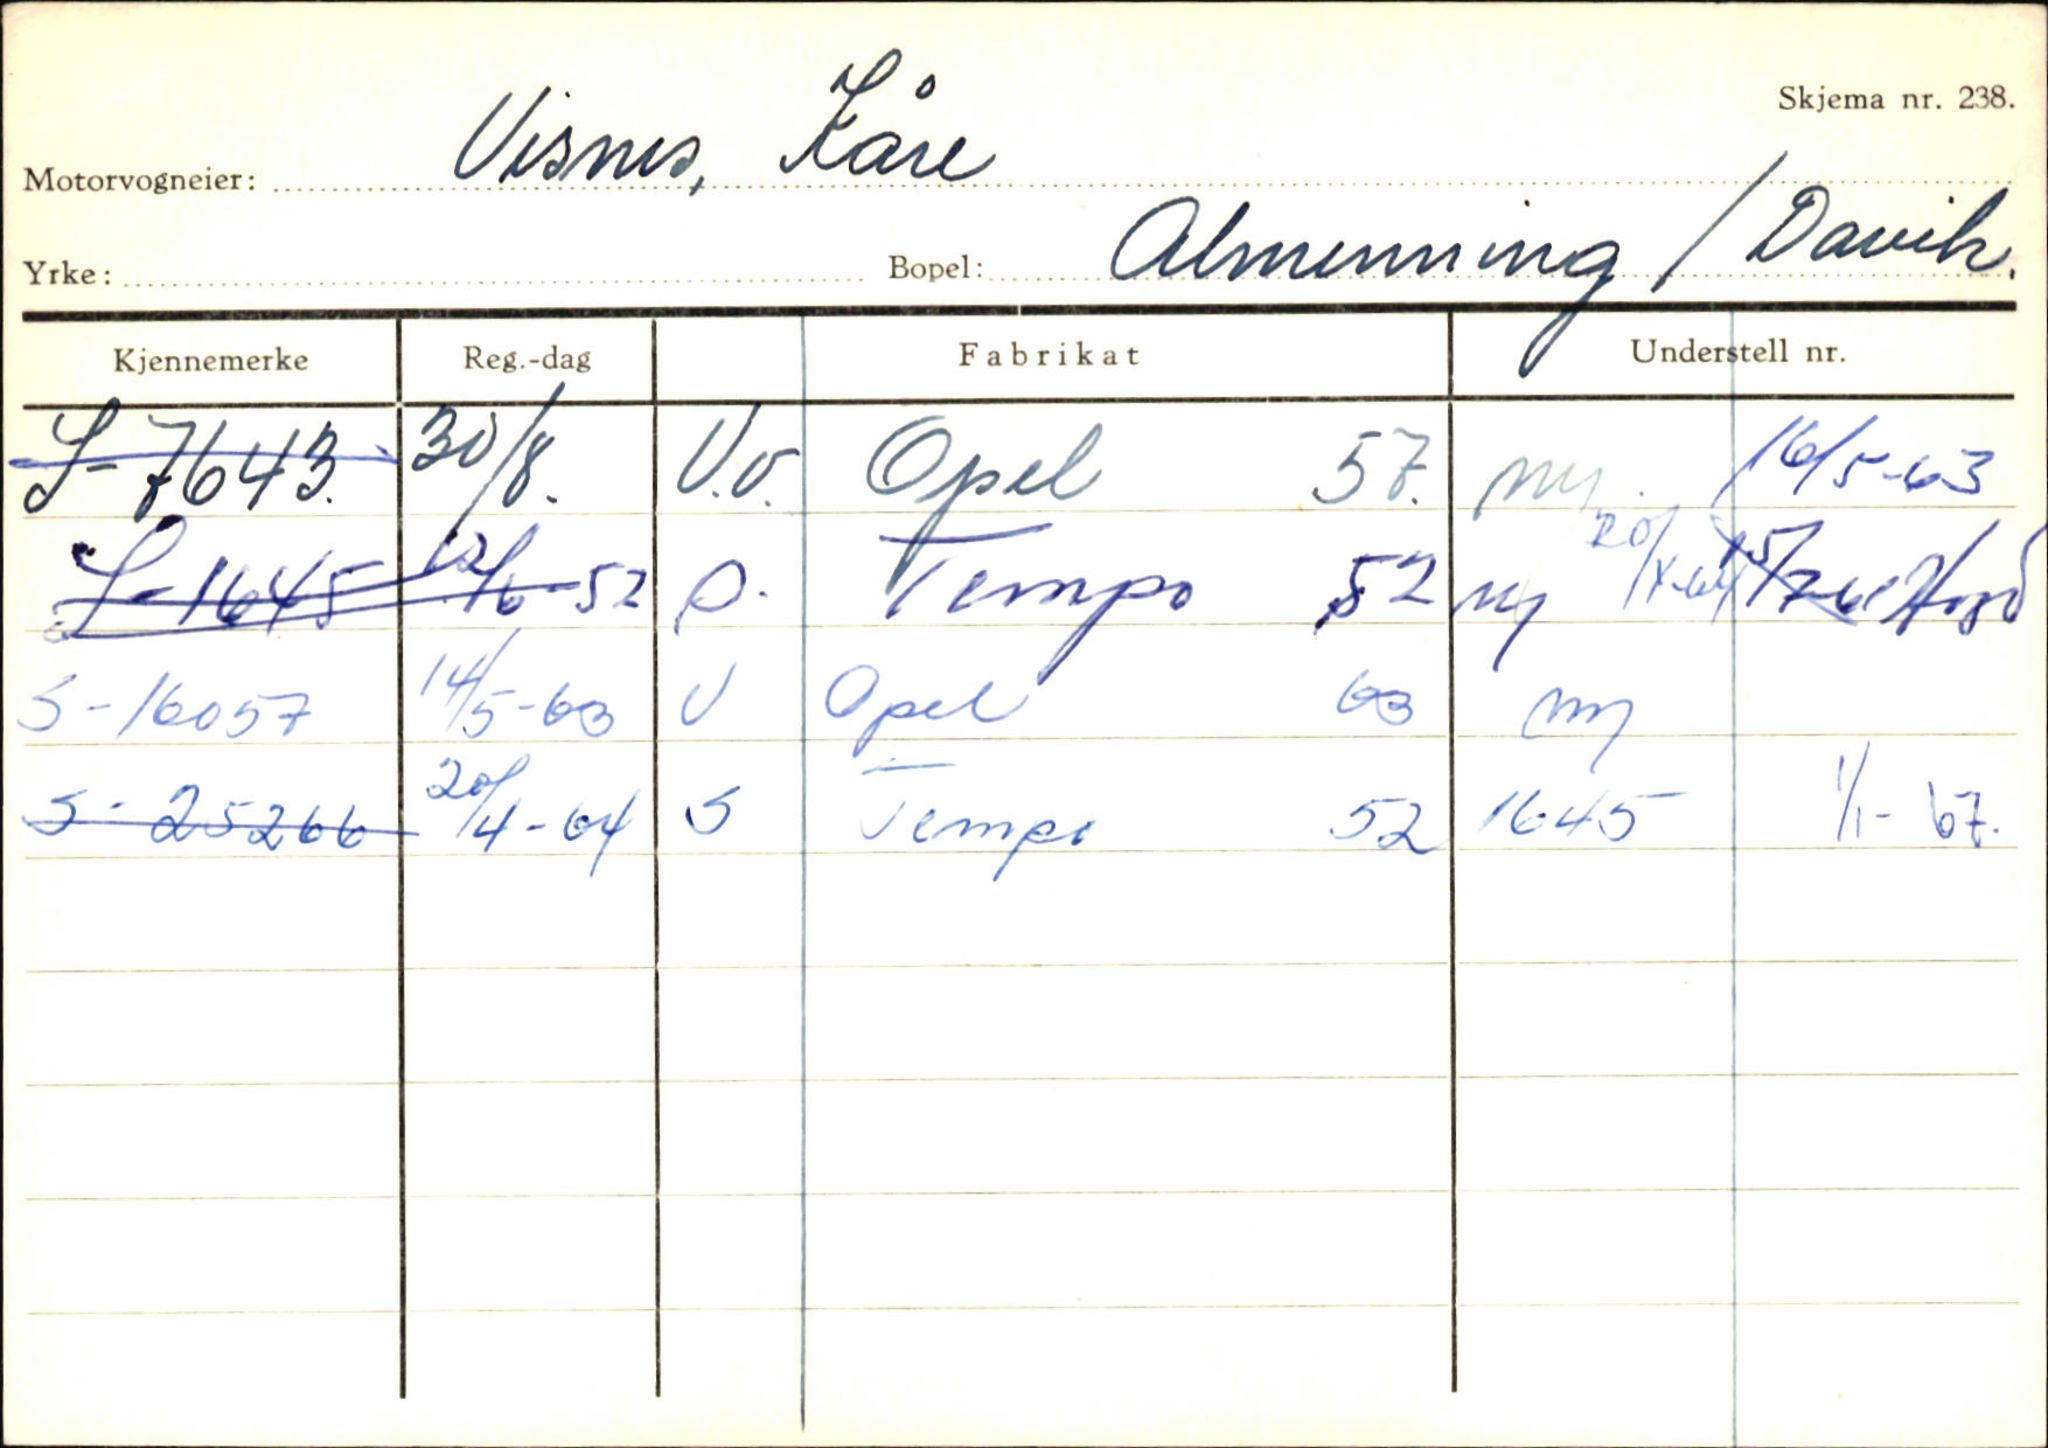 Skjema nr. 238.
Motorvogneier: Visnes, Kåre
Yrke: Bopel: Almenning / Davik.
Kjennemerke Reg.-dag Fabrikat Understell nr.
S-7643. 30/8. V.v. Opel 57. ny. 16/5-63
S-1645 12/6-52 Tempo 52 ny 20/4-64
S-16057 14/5-63 V Opel 63 ny
S-25266 20/4-64 S Tempo 52 1645 1/1-67.